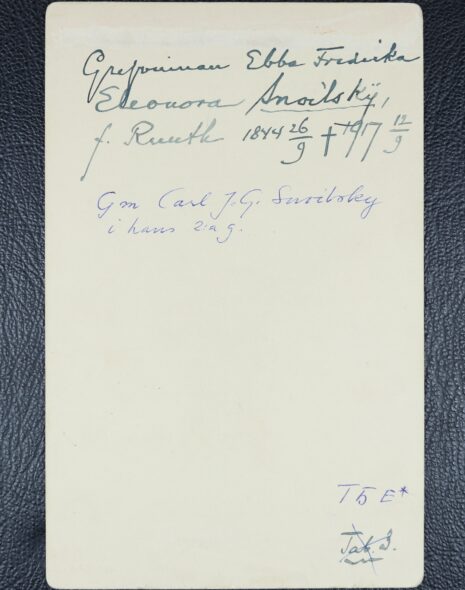 Grefvinnan Ebba Fredrika
Eleonora Snoilsky,
f. Ruuth 1844 26/9 † 1917 12/9
Gm Carl J.G. Snoilsky
i hans 2:a g.
T 5 E*
Tab. 3.